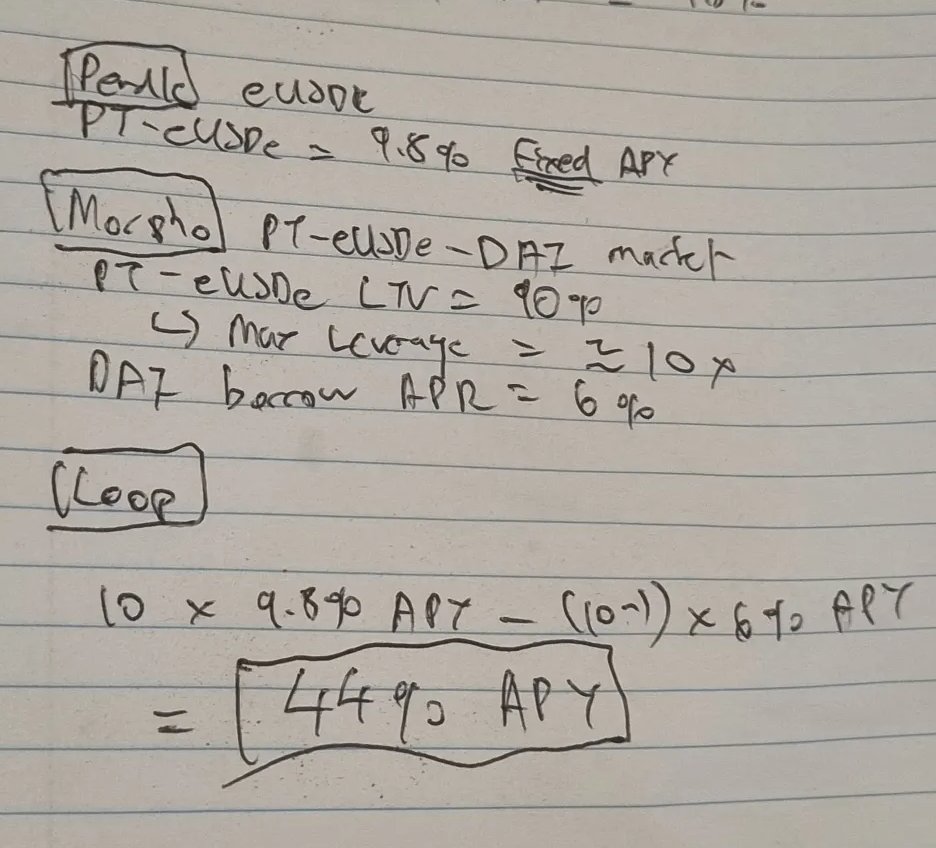 Pendle eUSDe
PT-eUSDe = 9.8% Fixed APY
Morpho PT-eUSDe-DAI market
PT-eUSDe LTV = 90%
↳ Max Leverage = ≈ 10x
DAI borrow APR = 6%
Loop
10 x 9.8% APY - (10-1) x 6% APY
= 44% APY